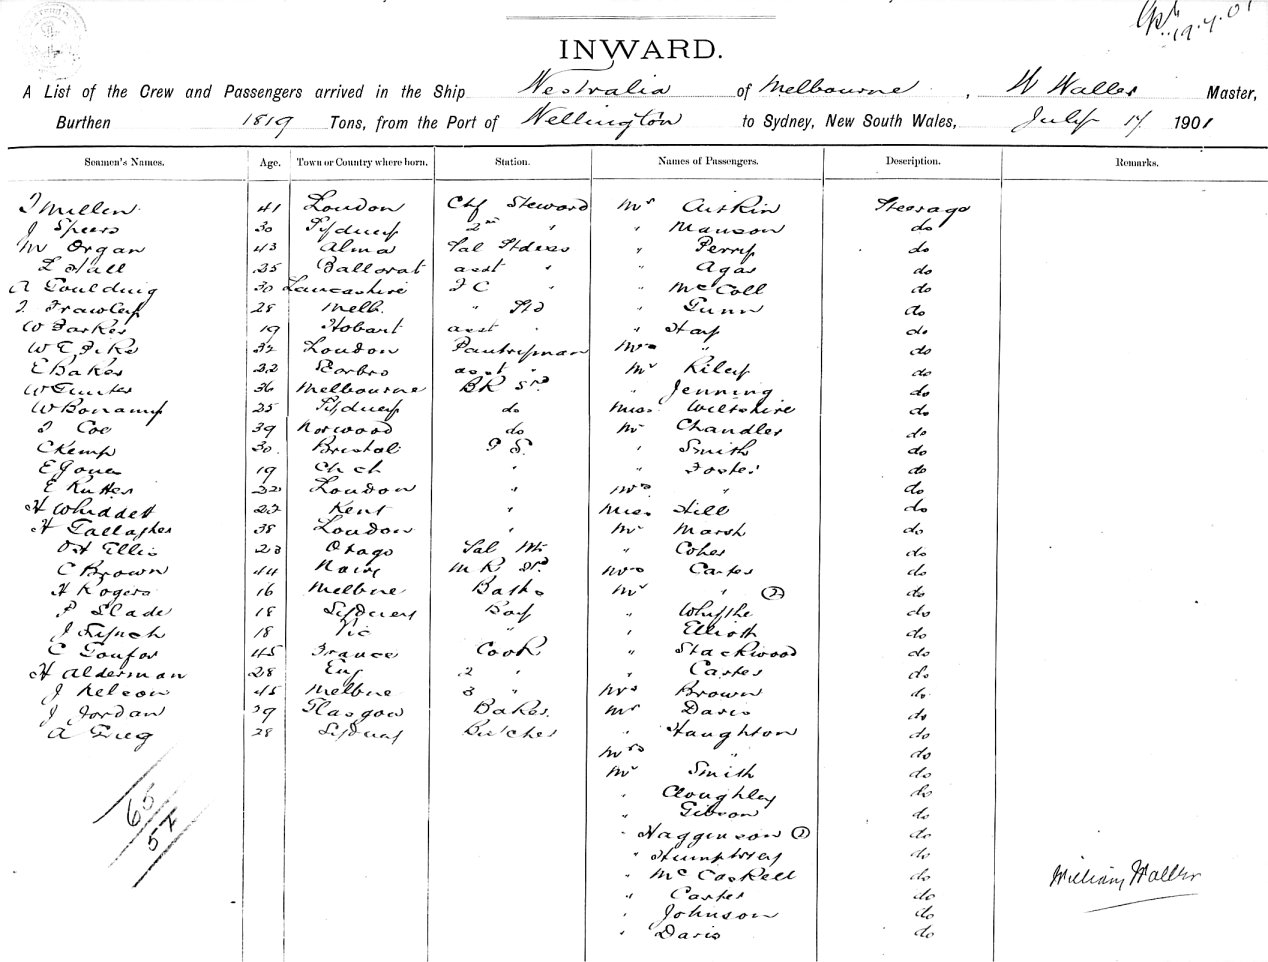 19.7.01
INWARD.
A List of the Crew and Passengers arrived in the Ship Westralia of Melbourne, W Waller Master,
Burthen 1819 Tons, from the Port of Wellington to Sydney, New South Wales, July 17 1901
Seamen's Names. Age. Town or Country where born. Station. Names of Passengers. Description. Remarks.
J Millen 41 London Chf Steward Mr Aitkin Steerage
J Speers 30 Sydney 2nd " " Manson do
M Organ 43 Alma Sal Stdess " Perry do
L Hall 25 Ballarat asst " " Agar do
A Goulding 30 Lancashire F C " " McColl do
J Frawley 28 Melb. " Std " Gunn do
W Farker 19 Hobart asst " " Hay do
W E Pike 32 London Pantryman Mrs " do
E Baker 22 Scarbro asst " Mr Riley do
W Gunter 36 Melbourne BK Sr " Jenning do
W Bonamy 25 Sydney do Miss Wiltshire do
J Coe 39 Norwood do Mr Chandler do
C Kemp 30 Bristol P S. " Smith do
E Jones 19 Ch ch " " Foster do
E Rutter 22 London " Mrs " do
H Whiddett 22 Kent " Miss Hill do
H Gallagher 38 London " Mr Marsh do
Ellis 23 Otago Sal Wtr " Coher do
C Brown 44 Nairn M R Sr Mrs Carter do
H Rogers 16 Melbne Bath Mr " (2) do
P Slade 18 Sydney Boy " do
J Lynch 18 Vic " " Elliott do
C Goufor 45 France Cook " Stackwood do
H Alderman 28 Eng 2 " " Carter do
J Nelson 45 Melbne 3 " Mrs Brown do
J Jordan 29 Glasgow Baker Mr Davis do
A Greg 28 Sydney Butcher " Haughton do
Mrs " do
Mr Smith do
" Cloughley do
" Gibson do
" Haggenson (2) do
" Humphrey do
" McCaskell do
" Carter do
" Johnson do
" Davis do
65
57
William Waller